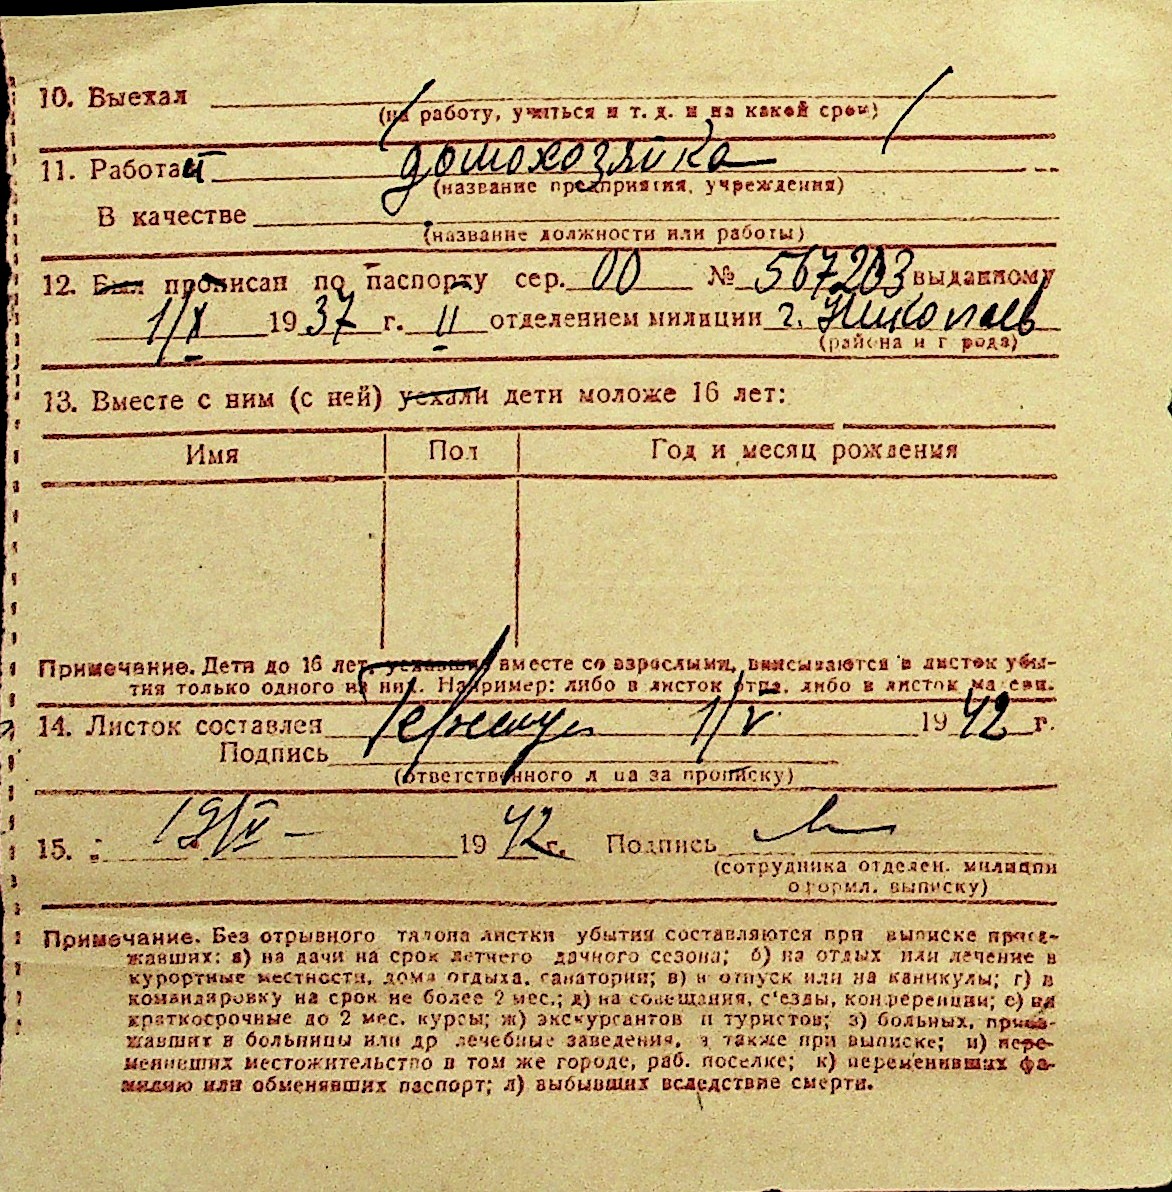 10. Выехал
(на работу, учиться и т. д. и на какой срок)
11. Работает домохозяйка
(название предприятия, учреждения)
В качестве
(название должности или работы)
12. Был прописан по паспорту сер. 00 № 567203 выданному
1/X 1937 г. II отделением милиции г. Николаев
(района и города)
13. Вместе с ним (с ней) уехали дети моложе 16 лет:
Имя Пол Год и месяц рождения
Примечание. Дети до 16 лет, уехавшие вместе со взрослыми, вписываются в листок убы-
тия только одного из них. Например: либо в листок отца, либо в листок матери.
14. Листок составлен 1/V 1942 г.
Подпись
(ответственного лица за прописку)
15. 19/V 1942 г. Подпись
(сотрудника отделен. милиции
оформл. выписку)
Примечание. Без отрывного талона листки убытия составляются при выписке приез-
жавших: а) на дачи на срок летнего дачного сезона; б) на отдых или лечение в
курортные местности, дома отдыха, санатории; в) в отпуск или на каникулы; г) в
командировку на срок не более 2 мес.; д) на совещания, с'езды, конференции; е) на
краткосрочные до 2 мес. курсы; ж) экскурсантов и туристов; з) больных, приез-
жавших в больницы или др лечебные заведения, а также при выписке; и) пере-
менивших местожительство в том же городе, раб. поселке; к) переменивших фа-
милию или обменявших паспорт; л) выбывших вследствие смерти.